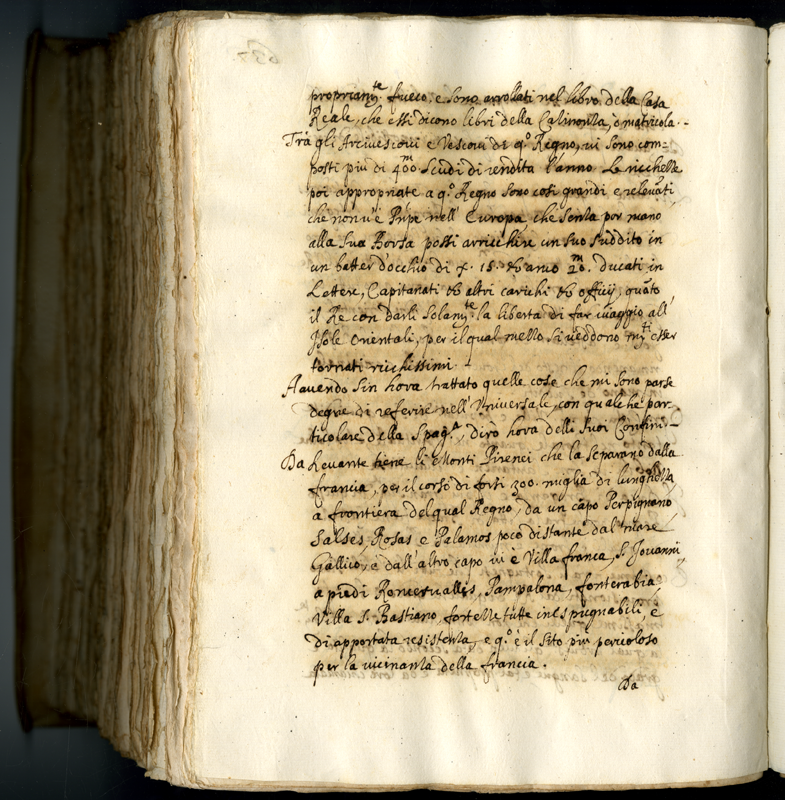 propriam.te fuero, e sono arrollati nel libro della Casa
Reale, che essi dicono libri della Calinonza, ò matricola. -
Trà gli Arcivescovi e Vescovi di q.o Regno, vi sono com=
posti più di 400.m Scudi di rendita l'anno. Le ricchezze
poi appropriate a q.o Regno sono così grandi e relevati
che non v'è Prñpe nell' Europa, che senza por mano
alla sua Borsa possi arricchire un suo suddito in
un batter d'occhio di x. 15. & anco 20.m Ducati in
Lettere, Capitanati & altri carichi & officij, quãto
il Re con darli solam.te la libertà di far viaggio all'
Isole orientali, per il qual mezzo si veddono m.ti esser
tornati ricchissimi. -
Havendo sin hora trattato quelle cose che mi sono parse
degne di referire nell' Universale, con qualche par=
ticolare della Spag.a, dirò hora delli suoi Confini. -
Da Levante tiene li Monti Pirenei che la separano dalla
francia, per il corso di forsi 300. miglia di lunghezza
a frontiera del qual Regno, da un capo Perpignano
Salses, Rosas e Palamos poco distante dal mare
Gallico, e dall' altro capo vi è Villa franca, S. Jovanni
a piedi Roncesvallis, Pampalona, fonterabia,
Villa S. Bastiano, fortezze tutte inespugnabili, e
di apportata resistenza, e q.o è il sito più pericoloso
per la vicinanza della francia.
Da